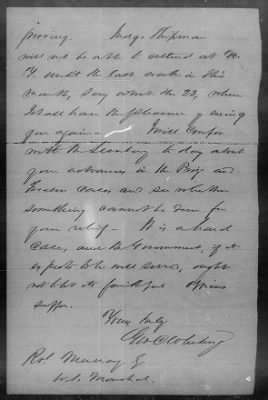 Judge Shipman
will not be able to attend at N.
Y. until the last week in this
month, say about the 23, when
I shall have the pleasure of seeing
you again — I will confer
with the Secretary to day about
your advances in the Prize and
cases and see whether
something cannot be done for
your relief — It is a hard
case, and the Government, if it
expects to be well served, ought
not let its faithful officers
suffer.
Yours truly
Geo C Whiting
Robt Murray Esq
U.S. Marshal